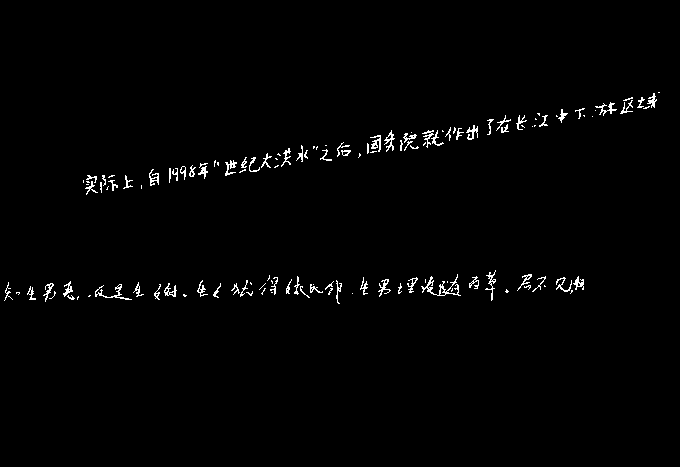 实际上,自1998年"世纪大洪水"之后,国务院就作出了在长江中下游区域
知生男恶,反是生女好。生女犹得嫁比邻,生男埋没随百草。君不见,青